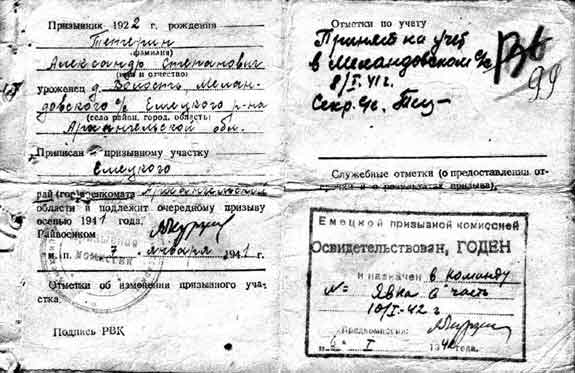 Призывник 1922 г. рождения
Тенгерин
(фамилия)
Александр Степанович
(имя и отчество)
уроженец д. Волость Мелан-
довского с/с Емецкого р-на
(село район, город, область)
Архангельской обл.
Приписан призывному участку
Емецкого
рай (гор) военкомата Архангельской
области и подлежит очередному призыву
осенью 1941 года.
Райвоенком
м. п. 7 января 1941 г.
призывная
комиссия
Отметки об изменении призывного уча-
стка.
Подпись РВК
Отметки по учету
Принят на учет
в Меландовском с/с
8/I.41г.
Секр. с/с
99
Служебные отметки (о предоставлении от-
срочки и о результатах призыва).
Емецкой призывной комиссией
Освидетельствован, ГОДЕН
и назначен в команду
№ = Явка в часть
10/I-42 г
Предкомиссии:
I 194 года.